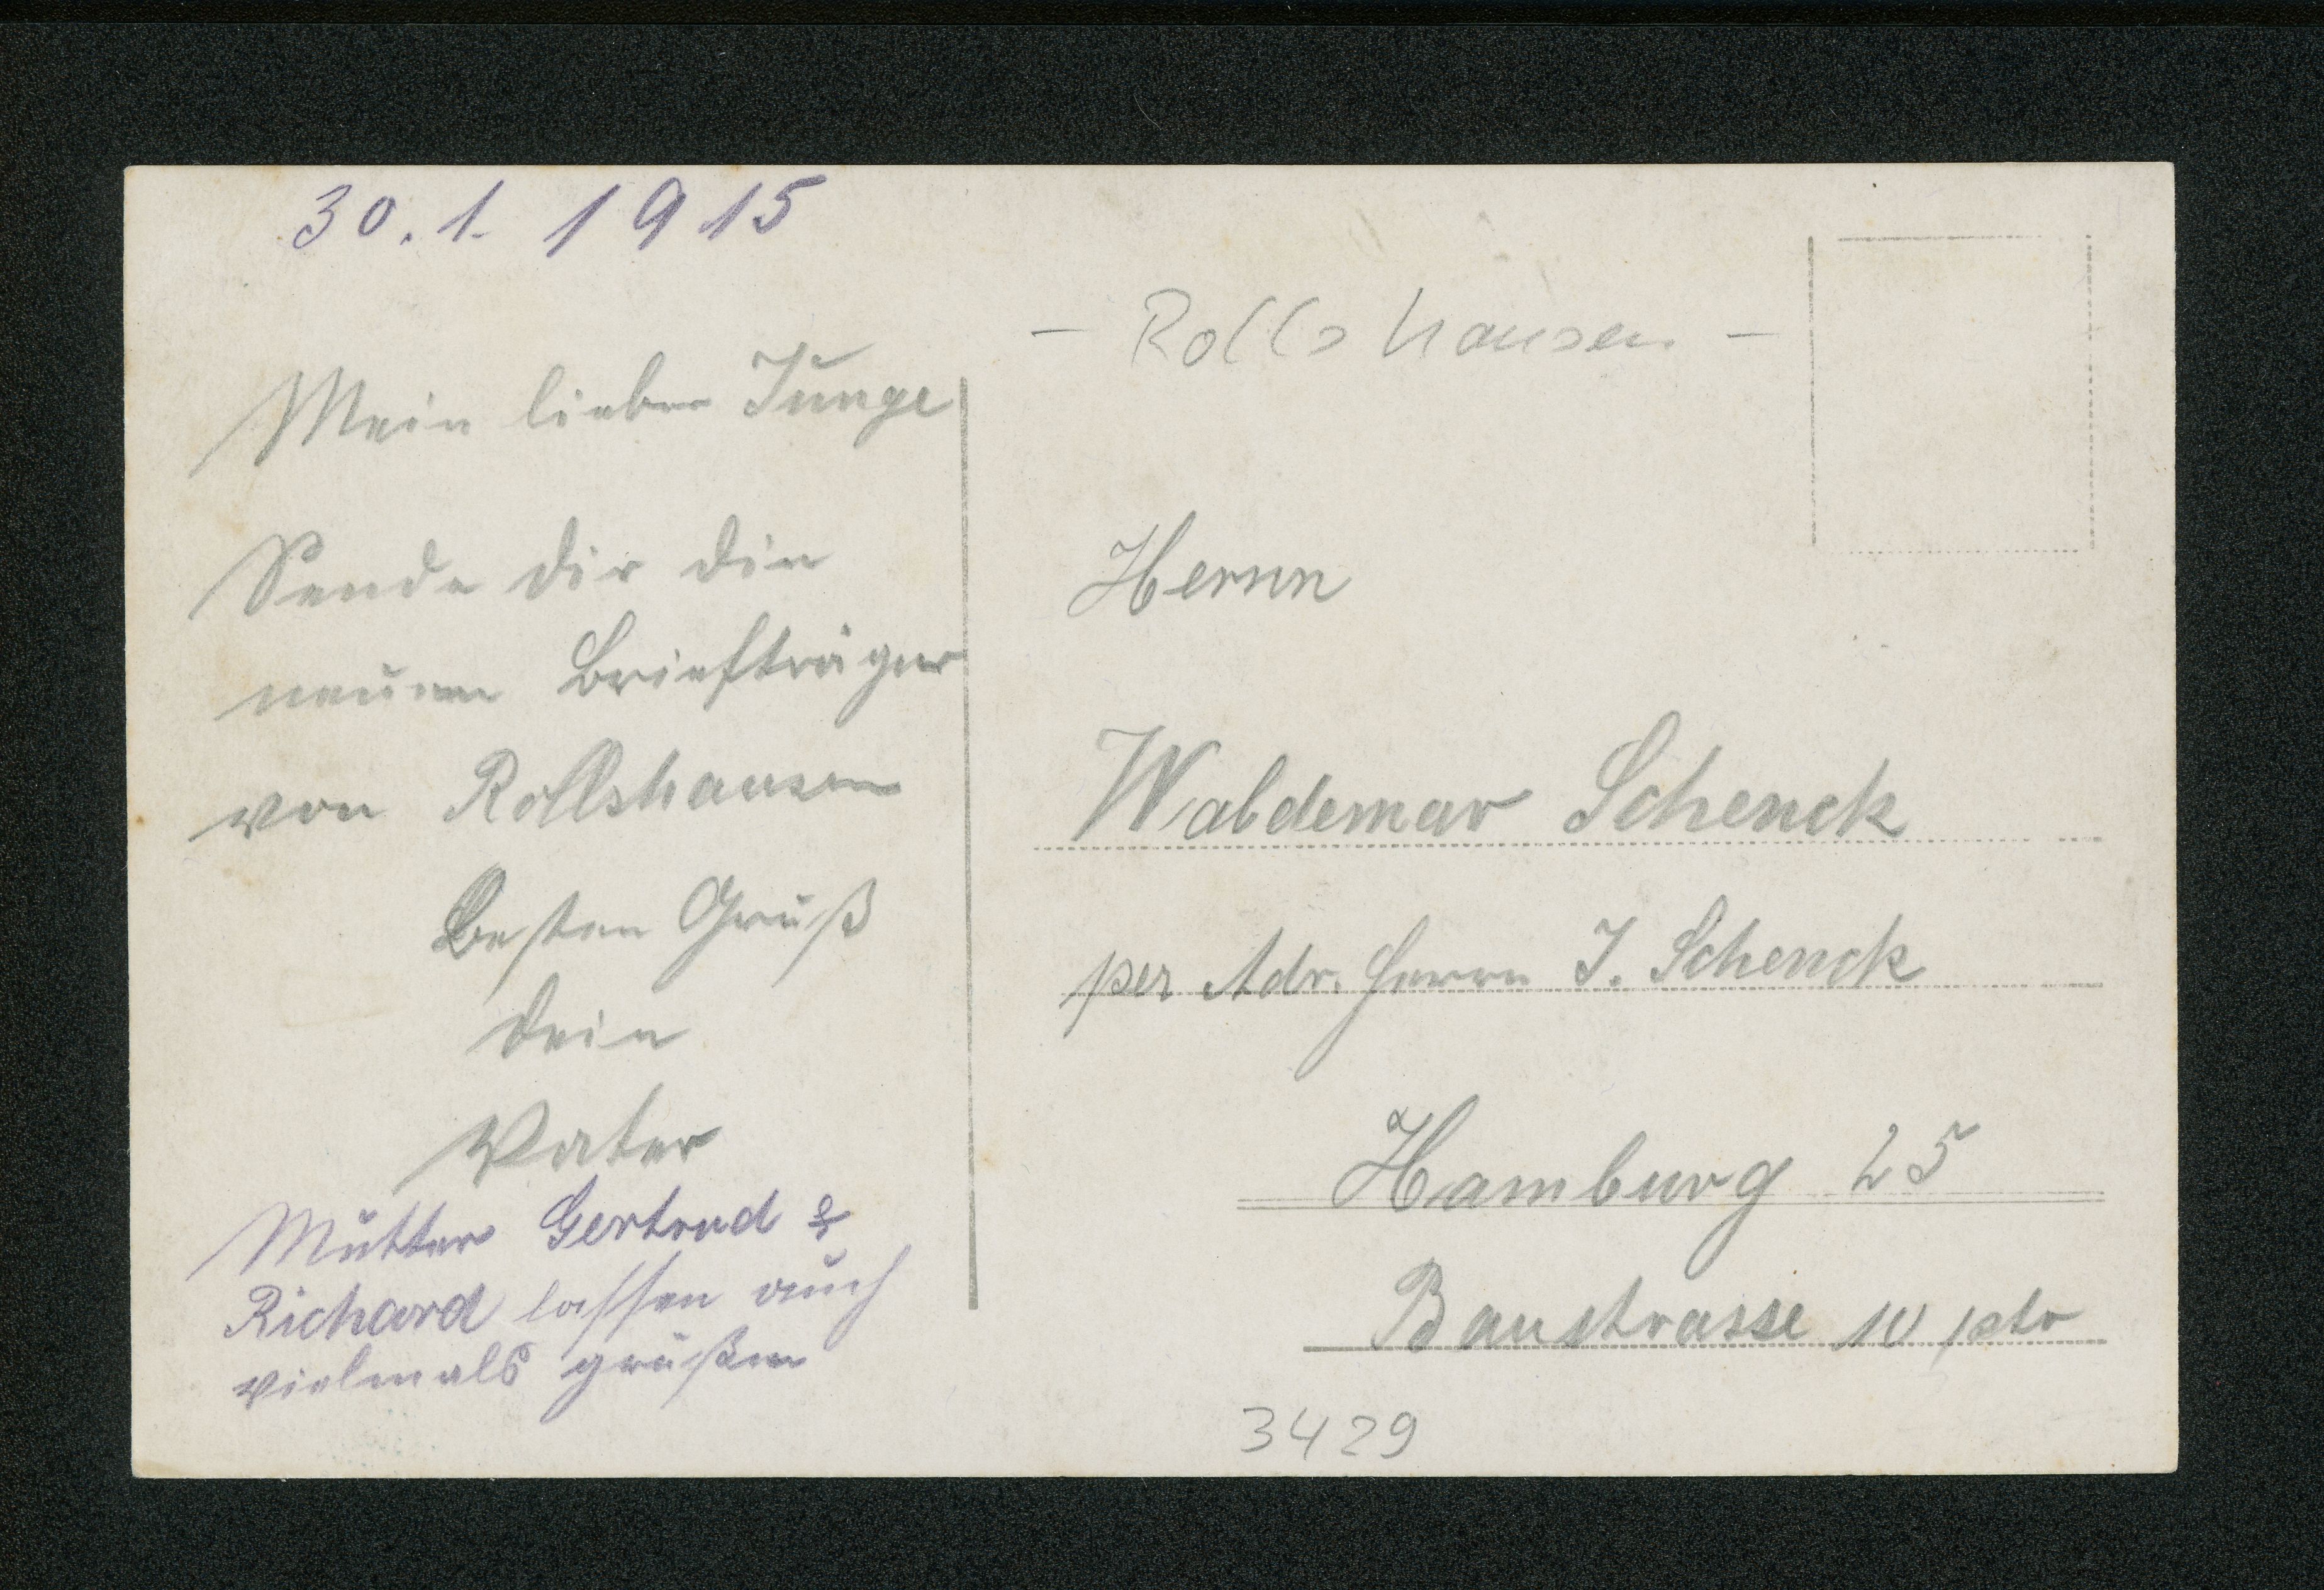 30. 1. 1915
Mein lieber Junge
Sende dir die
neuen Briefträger
von Rollshausen
Besten Gruß
Dein
Vater
Mutter Gertrud &
Richard lassen auch
vielmals grüßen
- Rollshausen -
Herrn
Waldemar Schenck
per Adr. Herrn J. Schenck
Hamburg 25
Baustrasse 10 ptr
3429